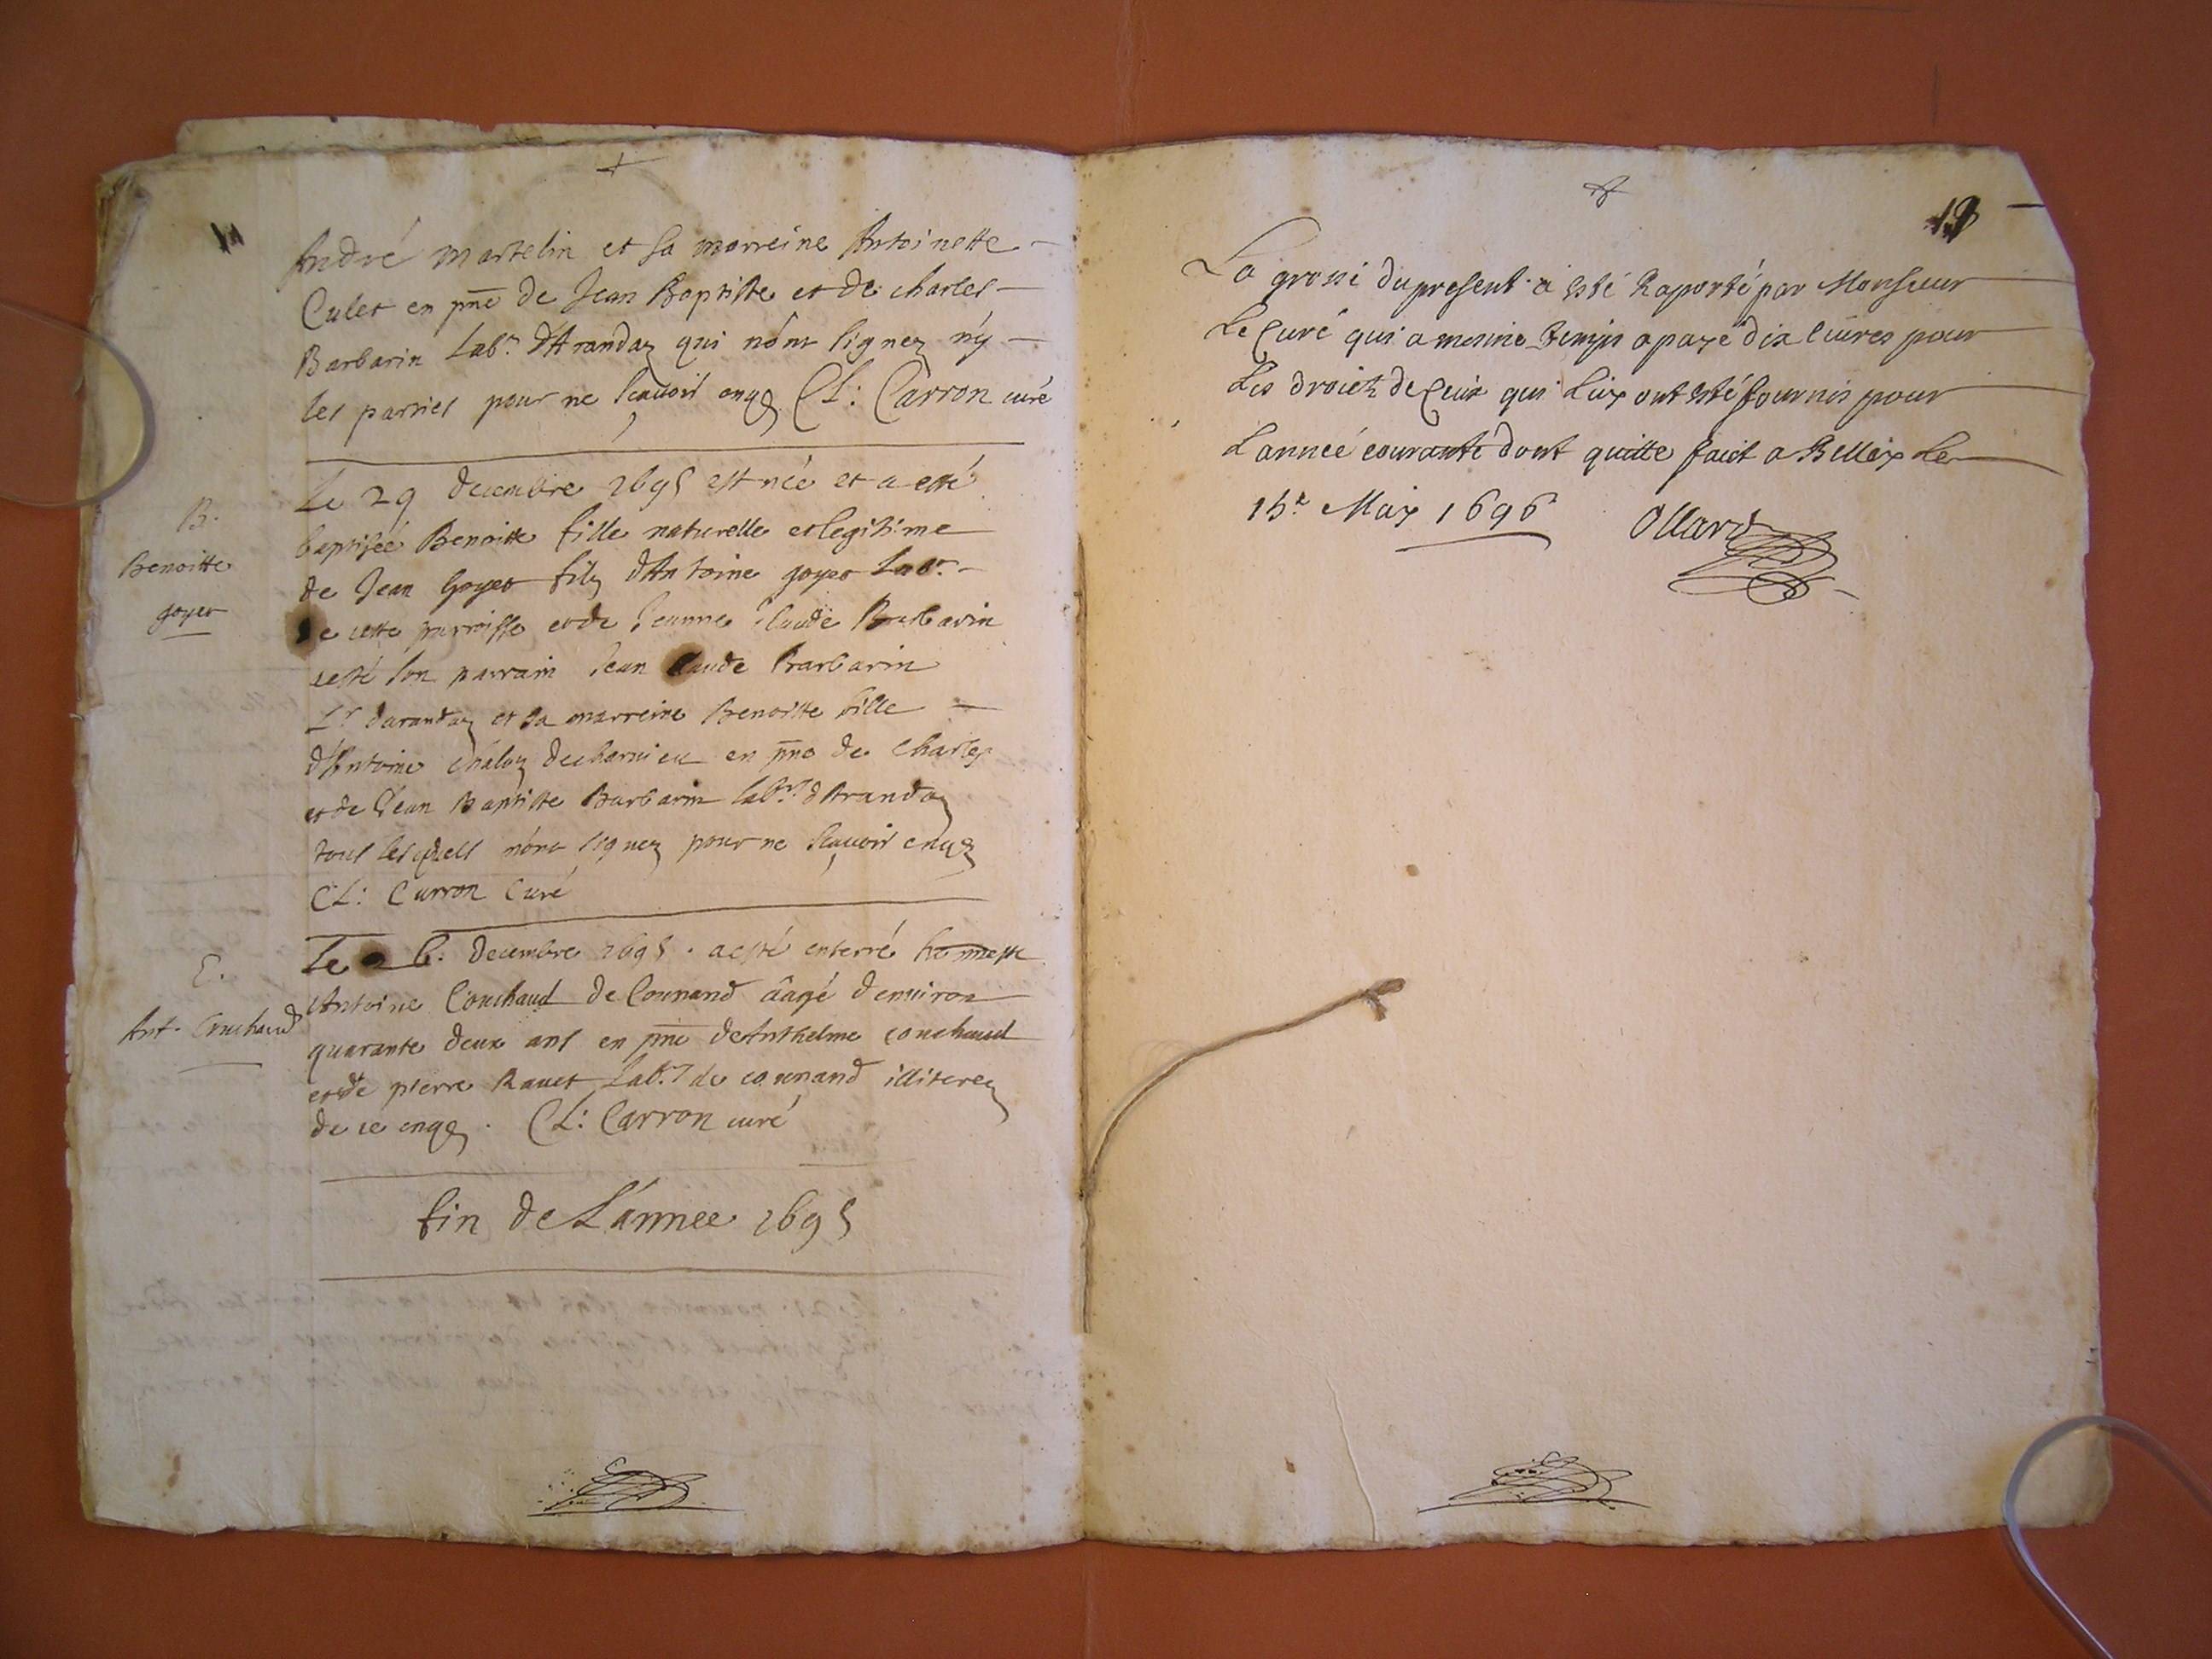 André martelin et sa marreine Antoinette
Culet en pñce de Jean Baptiste et de charles
Barbarin Labrs. d'Arandaz qui n'ont signez n'y
les parties pour ne scavoir enqs CL: Carron curé
B.
Benoitte
goyet
Le 29 decembre 1695 est née et a esté
baptisée Benoitte fille naturelle et legitime
de Jean Goyet filz d'Antoine goyet Labr.
de cette parroisse et de Jeanne Claude Barbarin
a esté son parrain Jean Claude Barbarin
Lr. darandaz et sa marreine Benoitte fille
d'Antoine de charnieu en pñce de Charles
et de Jean Baptiste Barbarin labrs. d'Arandaz
tous lesquels n'ont signez pour ne scavoir enqs
CL: Carron Curé
E.
Ant. Couchaud
Le decembre 1695. a esté enterré
Antoine Couchaud de Counand aagé d'environ
quarante deux ans en pñce de Anthelme couchaud
et de pierre Ravet Labrs de counand illiterez
de ce enqs. CL: Carron curé
fin de L'année 1695
La grosse du present a esté Raporté par Monsieur
Le Curé qui a mesme temps a payé dix livres pour
Les droictz de Ceux qui Luy ont esté fournis pour
Lannéé courante dont quitte faict a Belley Le
15e May 1696 Ollard